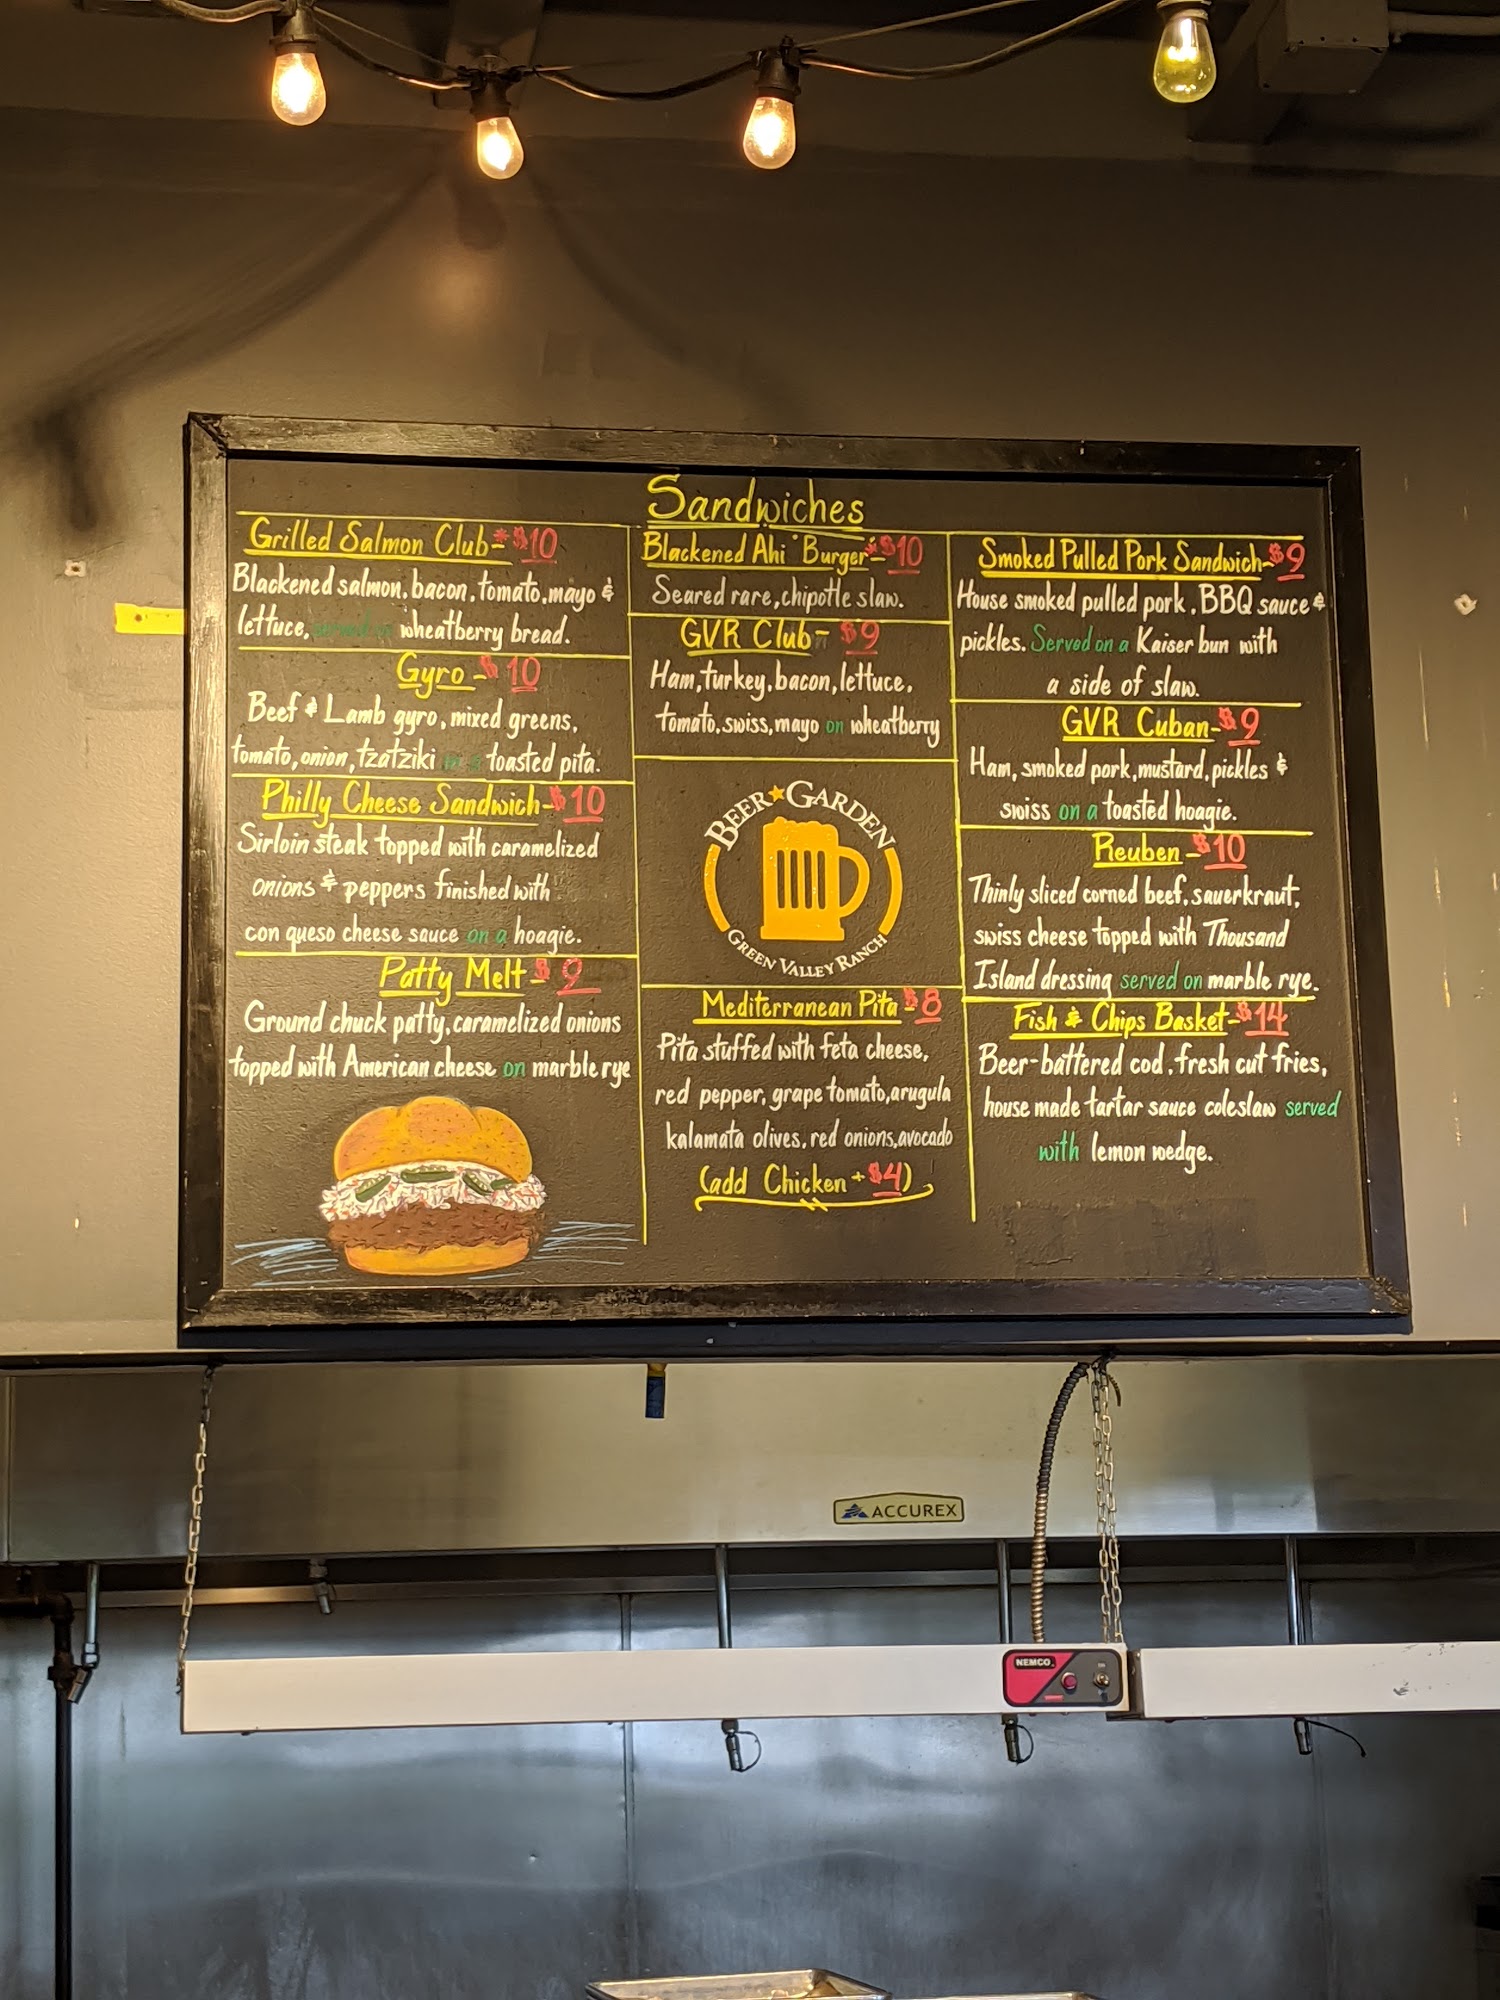 Sandwiches
Grilled Salmon Club-*$10
Blackened salmon, bacon, tomato, mayo &
lettuce, served on wheatberry bread.
Gyro-$10
Beef & Lamb gyro, mixed greens,
tomato, onion, tzatziki toasted pita.
Philly Cheese Sandwich-$10
Sirloin steak topped with caramelized
onions & peppers finished with
con queso cheese sauce on a hoagie.
Patty Melt-$9
Ground chuck patty, caramelized onions
topped with American cheese on marble rye
Blackened Ahi "Burger"*-$10
Seared rare, chipotle slaw.
GVR Club-$9
Ham, turkey, bacon, lettuce,
tomato, swiss, mayo on wheatberry
BEER GARDEN
GREEN VALLEY RANCH
Mediterranean Pita-$8
Pita stuffed with feta cheese,
red pepper, grape tomato, arugula
kalamata olives, red onions, avocado
(add Chicken + $4)
Smoked Pulled Pork Sandwich-$9
House smoked pulled pork, BBQ sauce &
pickles. Served on a Kaiser bun with
a side of slaw.
GVR Cuban-$9
Ham, smoked pork, mustard, pickles &
swiss on a toasted hoagie.
Reuben-$10
Thinly sliced corned beef, sauerkraut,
swiss cheese topped with Thousand
Island dressing served on marble rye.
Fish & Chips Basket-$14
Beer-battered cod, fresh cut fries,
house made tartar sauce coleslaw served
with lemon wedge.
ACCUREX
NEMCO